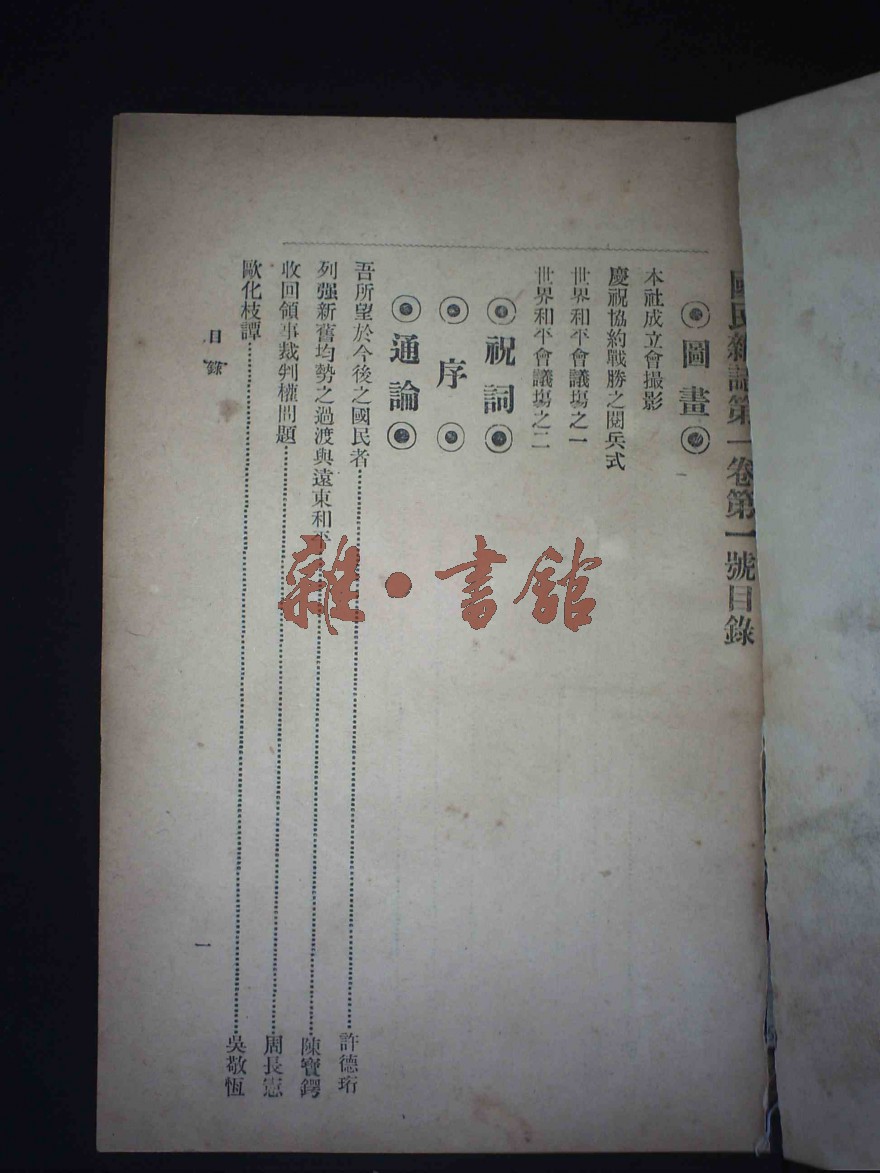 國民雜誌第一卷第一號目錄
圖畫
本社成立會撮影
慶祝協約戰勝之閱兵式
世界和平會議塲之一
世界和平會議塲之二
祝詞
序
通論
吾所望於今後之國民者……許德珩
列强新舊均勢之過渡與遠東和平……陳寶鍔
收回領事裁判權問題……周長憲
歐化枝譚……吳敬恆
目錄
一
雜·書館